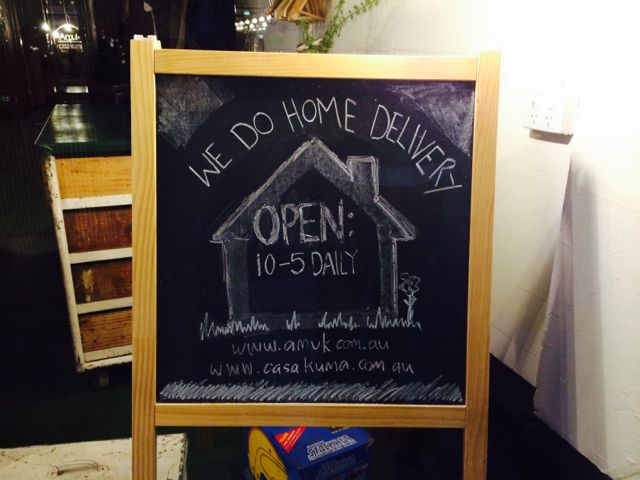 Amuk
WE DO HOME DELIVERY
OPEN:
10-5 DAILY
www.amuk.com.au
www.casakuma.com au